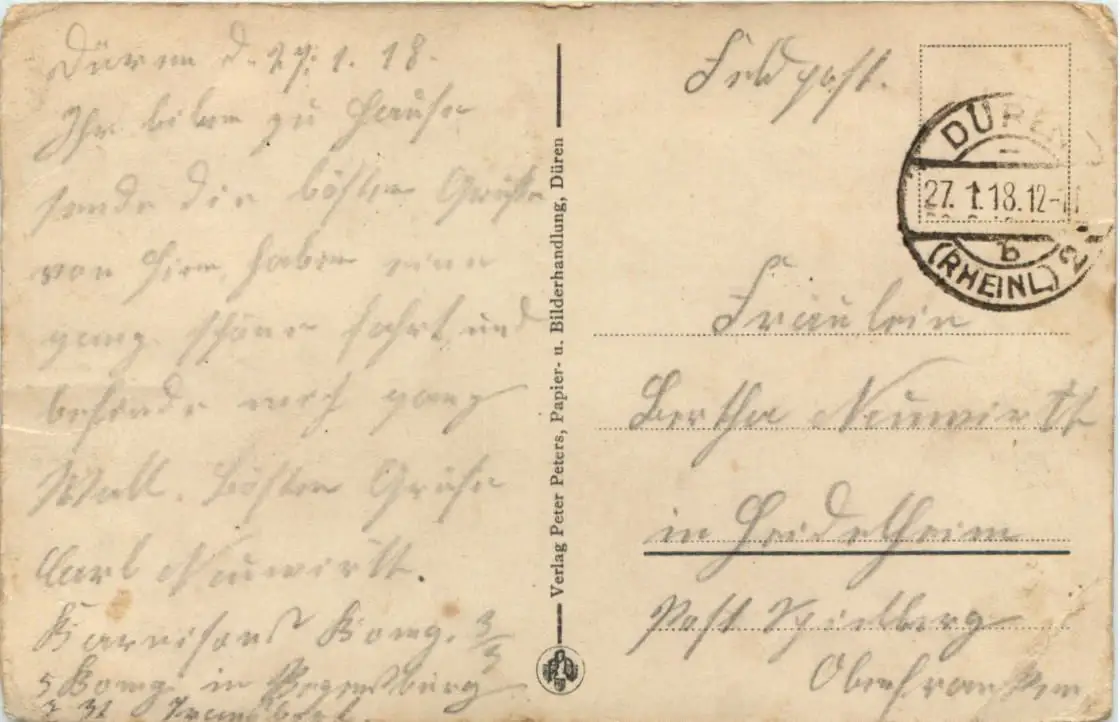 Düren d. 27. 1. 18.
Ihr lieben zu Hause
sende die bösten Grüße
von hier, haben eine
ganz schöne fahrt und
befinde mich ganz
Woll. Bösten Grüße
Carl Neuwirth.
Garnisons Komp. 3/5
5 Komp in Regensburg
Transport.
Verlag Peter Peters, Papier- u. Bilderhandlung, Düren
Feldpost.
DÜREN
27. 1. 18. 12-
b
(RHEINL) 2
Fräulein
Bertha Neuwirth
in Heidelheim
Post Spielberg
Oberfranken